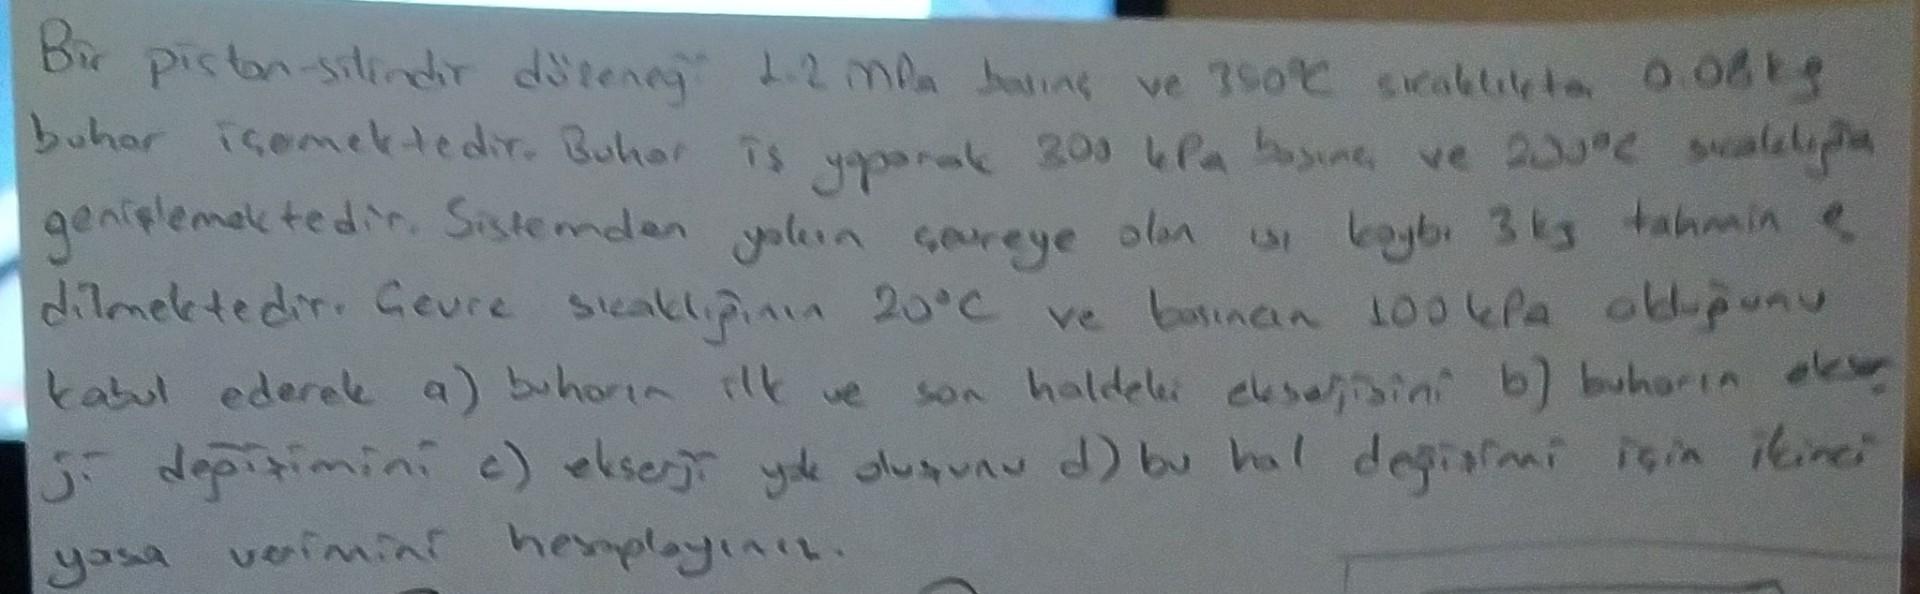 Bir piston-silindir düzeneği 1.2 mPa basınç ve 350°C sıcaklıkta 0.08 kg
buhar içemektedir. Buhar iş yaparak 300 kPa basınç ve 200°C sıcaklığa
genişlemektedir. Sistemden yakın çevreye olan ısı kaybı 3 kg tahmin e
dilmektedir. Çevre sıcaklığının 20°C ve basıncın 100 kPa olduğunu
kabul ederek a) buharın ilk ve son haldeki ekserjisini b) buharın ekser
ji değişimini c) ekserji yok oluşunu d) bu hal değişimi için ikinci
yasa verimini hesaplayınız.